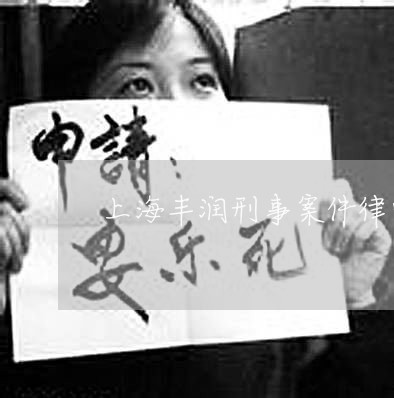 申請：
上海丰润刑事案件律
要乐死